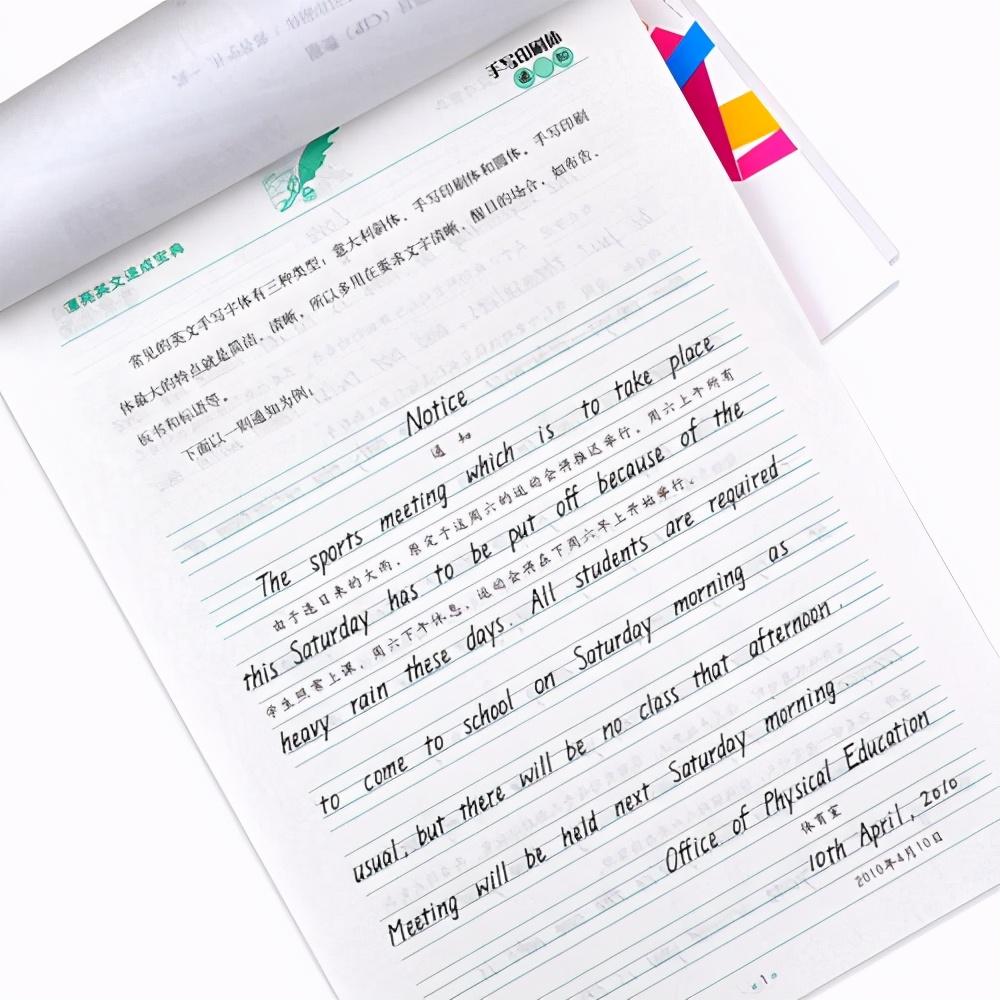 手写印刷体
漂亮英文速成宝典
常见的英文手写字体有三种类型：意大利斜体、手写印刷体和圆体。手写印刷
体最大的特点就是简洁、清晰，所以多用在要求文字清晰、醒目的场合，如布告、
板书和标语等。
下面以一则通知为例：
Notice
通知
The sports meeting which is to take place
由于连日来的大雨，原定于这周六的运动会将推迟举行。周六上午所有
this Saturday has to be put off because of the
学生照常上课，周六下午休息，运动会将在下周六早上开始举行。
heavy rain these days. All students are required
to come to school on Saturday morning as
usual, but there will be no class that afternoon.
Meeting will be held next Saturday morning.
Office of Physical Education
体育室
10th April, 2010
2010年4月10日
1